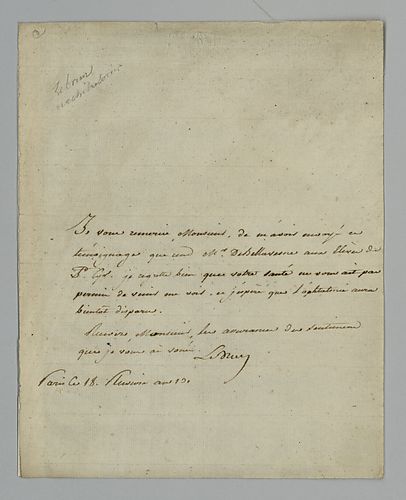 Je vous remercie, Monsieur, de m'avoir envoyé ce
témoignage que rend Mr. DeBellavesne aux Elèves de
je regrette bien que votre santé ne vous ait pas
permis de venir me voir. j'espère que l'ophtalmie aura
bientôt disparu.
Recevez, Monsieur, les assurances des sentimens
que je vous ai voués
LeBrun
Paris le 18. Pluviose an 13.